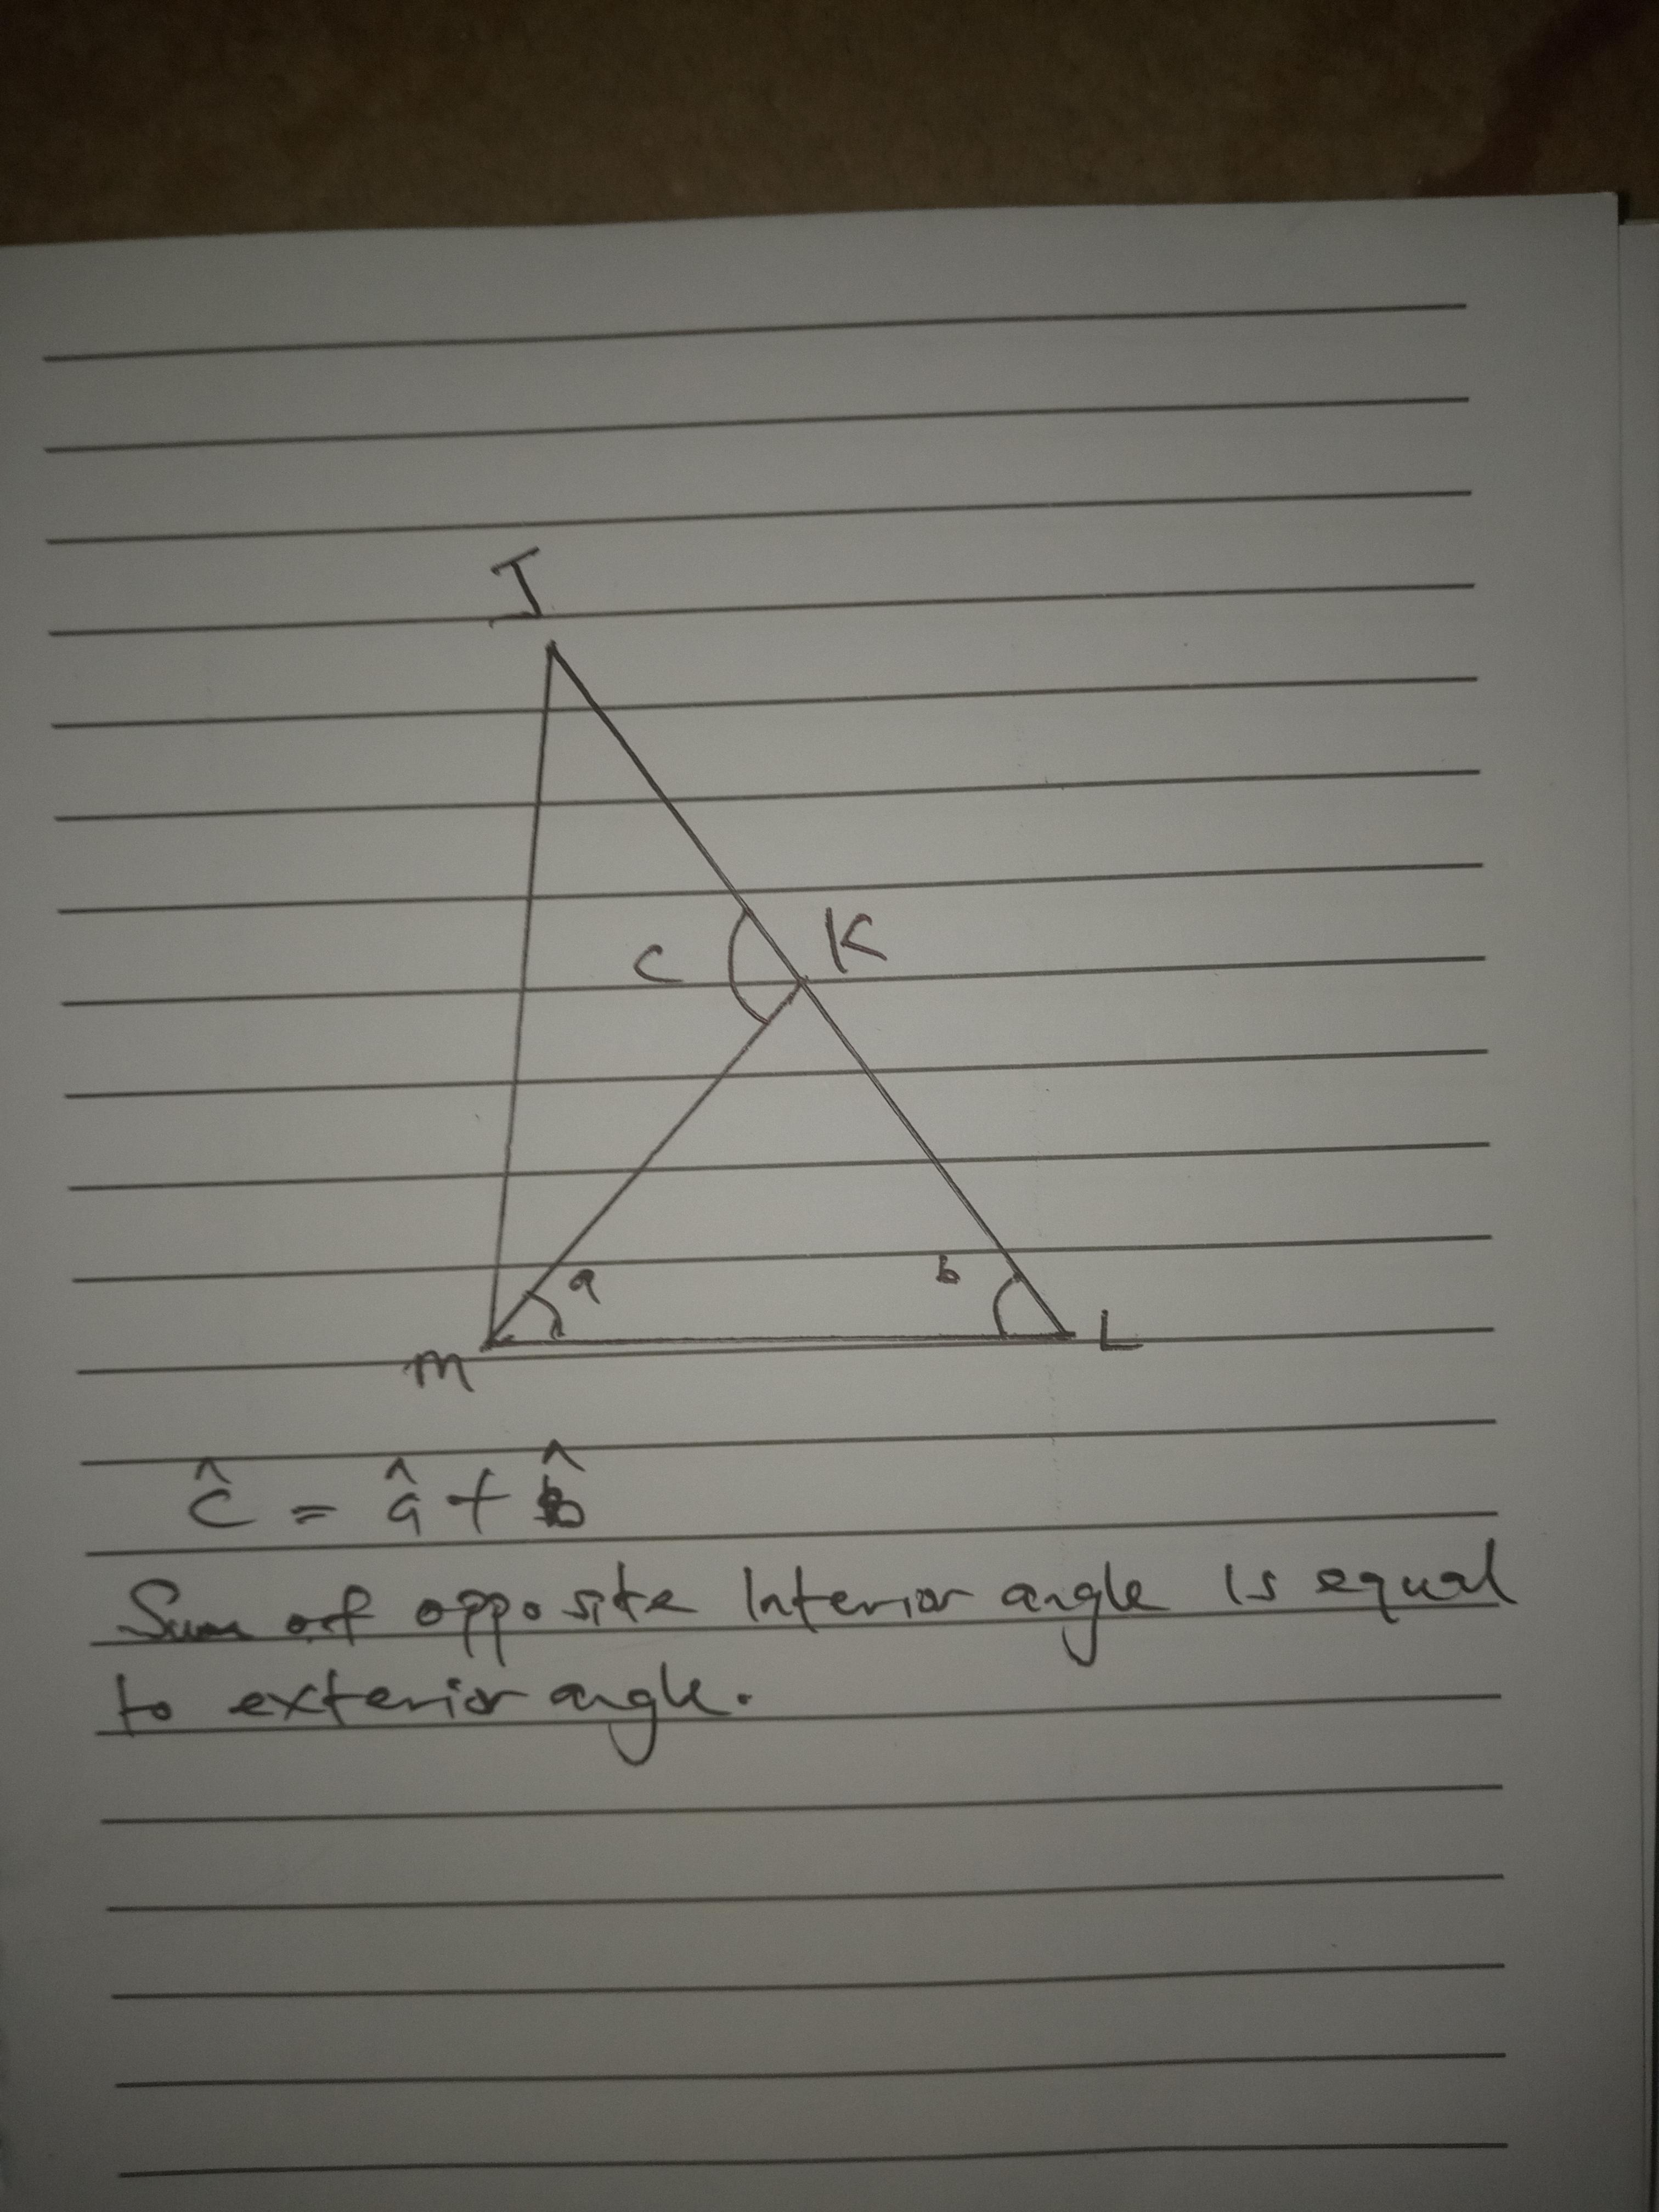 J
K
c
a
b
m
L
ĉ = â + b̂
Sum of opposite Interior angle is equal
to exterior angle.